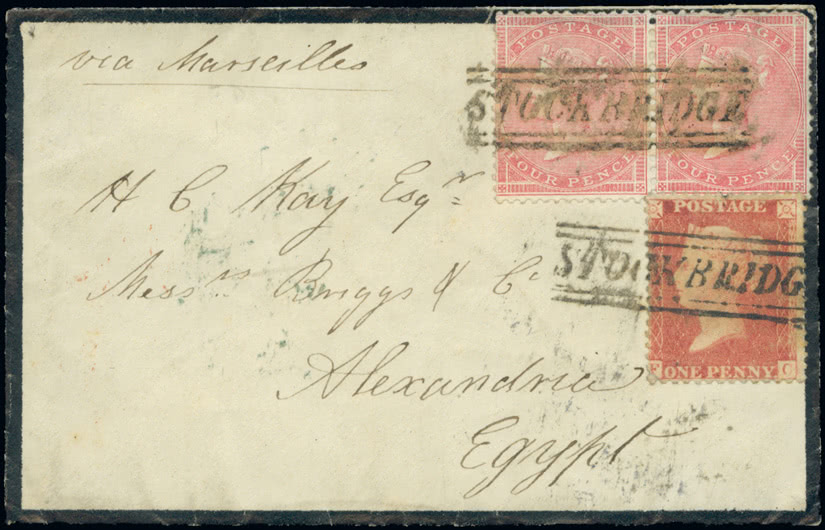 via Marseilles
POSTAGE POSTAGE
STOCKBRIDGE
FOUR PENCE FOUR PENCE
H C Kay Esqr
POSTAGE
STOCKBRIDG
Messrs Briggs & Co
ONE PENNY
F C
Alexandria
Egypt